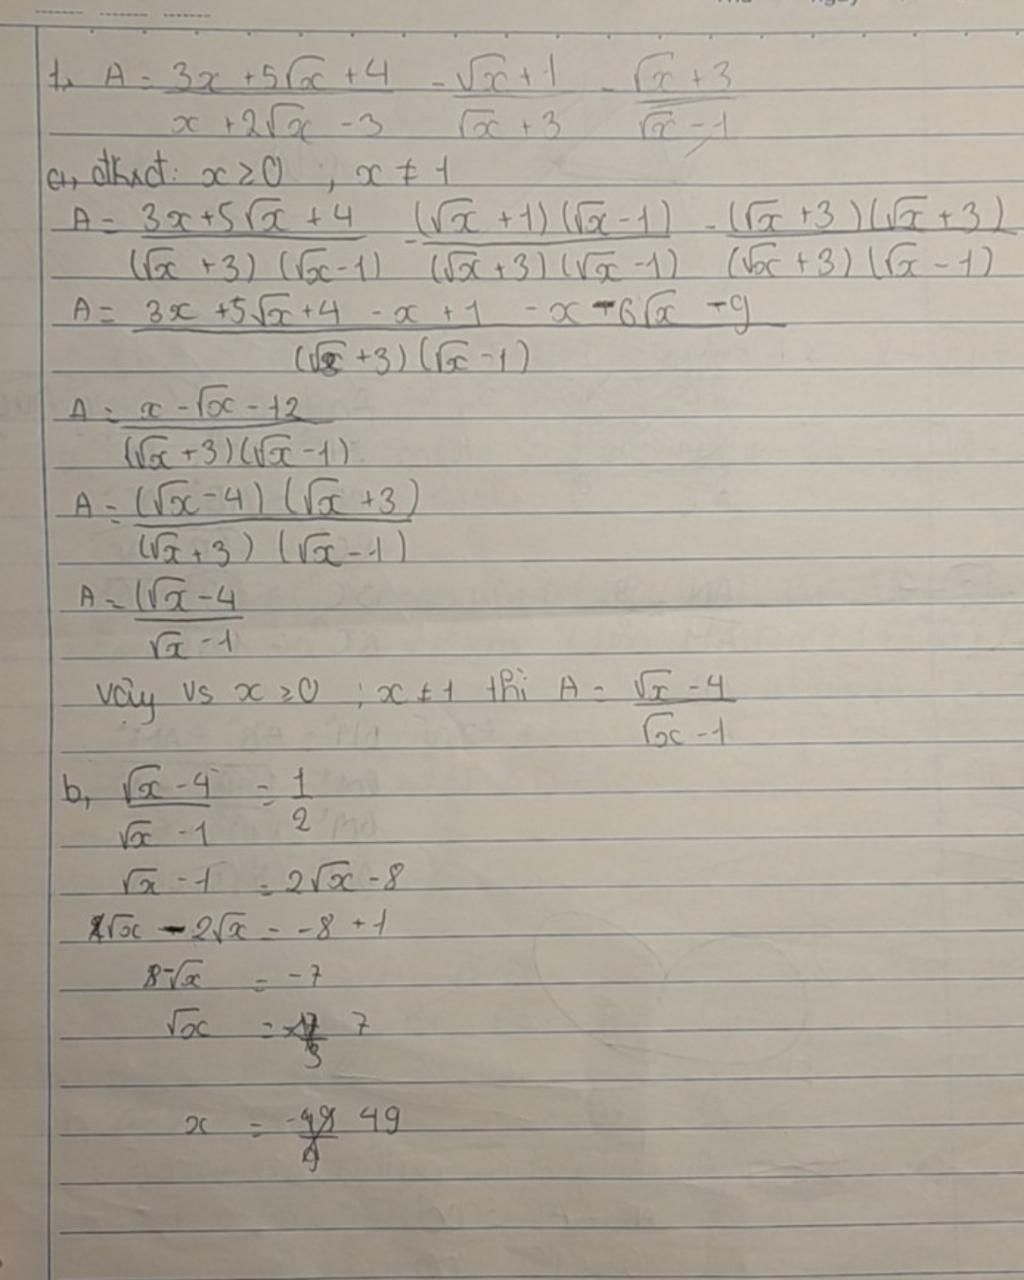 1, A = (3x + 5√x + 4)/(x + 2√x - 3) - (√x + 1)/(√x + 3) - (√x + 3)/(√x - 1)
a, đkxđ: x ≥ 0 ; x ≠ 1
A = (3x + 5√x + 4)/((√x + 3)(√x - 1)) - ((√x + 1)(√x - 1))/((√x + 3)(√x - 1)) - ((√x + 3)(√x + 3))/((√x + 3)(√x - 1))
A = (3x + 5√x + 4 - x + 1 - x - 6√x - 9)/((√x + 3)(√x - 1))
A = (x - √x - 12)/((√x + 3)(√x - 1))
A = ((√x - 4)(√x + 3))/((√x + 3)(√x - 1))
A = (√x - 4/√x - 1
vậy vs x ≥ 0 ; x ≠ 1 thì A = (√x - 4)/(√x - 1)
b, (√x - 4)/(√x - 1) = 1/2
√x - 1 = 2√x - 8
√x - 2√x = -8 + 1
-√x = -7
√x = 7
x = 49